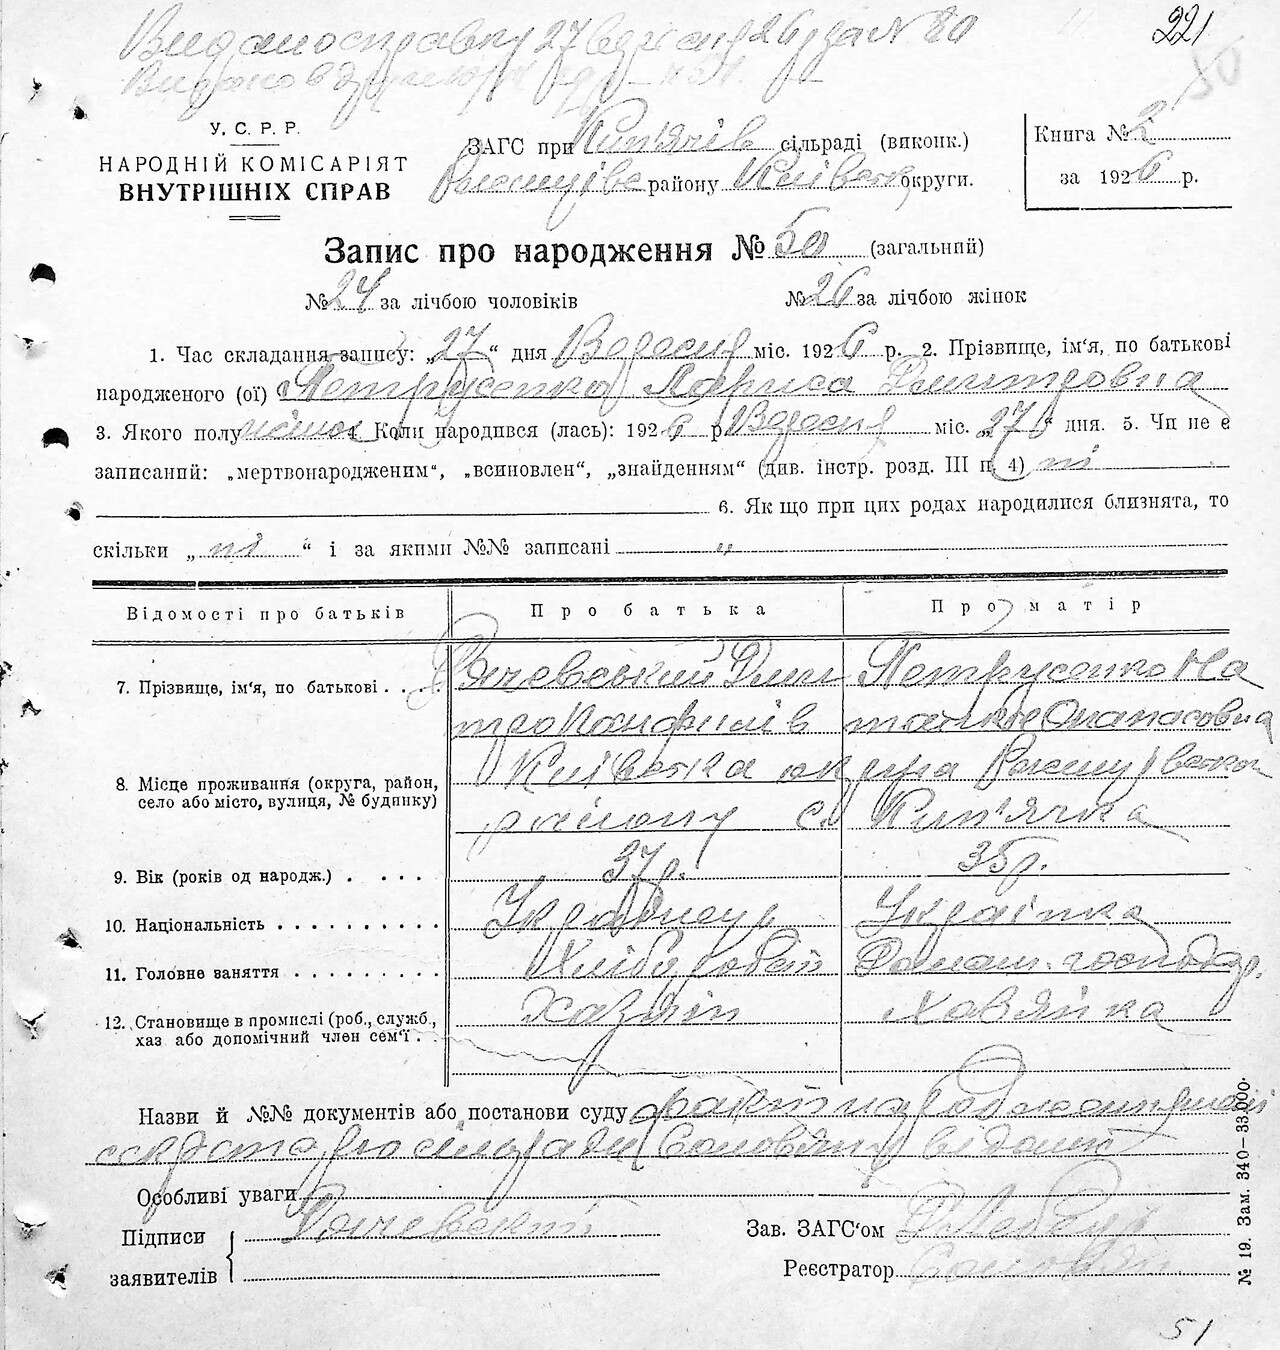 Видано справку 27 вересня 26 р за № 80
221
50
У. С. Р. Р.
НАРОДНІЙ КОМІСАРІЯТ
ВНУТРІШНІХ СПРАВ
ЗАГС при Кип'ячів сільраді (виконк.)
району Київськ округи.
Книга № 2
за 1926 р.
Запис про народження № 50 (загальний)
№ 24 за лічбою чоловіків № 26 за лічбою жінок
1. Час складання запису: „27“ дня Вересня міс. 1926 р. 2. Прізвище, ім'я, по батькові
народженого (ої) Петрусенко Лариса Дмитровна
3. Якого полу жіноч 4. Коли народився (лась): 1926 р. Вересня міс. „27“ дня. 5. Чи не є
записаний: „мертвонародженим“, „всиновлен“, „знайденням“ (див. інстр. розд. III п. 4) ні
6. Як що при цих родах народилися близнята, то
скільки „ні“ і за якими №№ записані „
Відомості про батьків Про батька Про матір
7. Прізвище, ім'я, по батькові . . . Дмит Петрусенко На
тро Панфилів талка Опанасовна
8. Місце проживання (округа, район, село або місто, вулиця, № будинку) Київська округа
району с. Кип'ячка
9. Вік (років од народж.) . . . . 37 р. 35 р.
10. Національність . . . . . . . . . . Українець Українка
11. Головне заняття . . . . . . . . . Хлібороб Домаш. господар.
12. Становище в промислі (роб., служб., хаз або допомічний член сем'ї . . Хазяїн Хазяйка
Назви й №№ документів або постанови суду факт народження
секретарю сільради
Особливі уваги
Підписи
заявителів
Зав. ЗАГС'ом
Реєстратор
№ 19. Зам. 340—33.000.
51